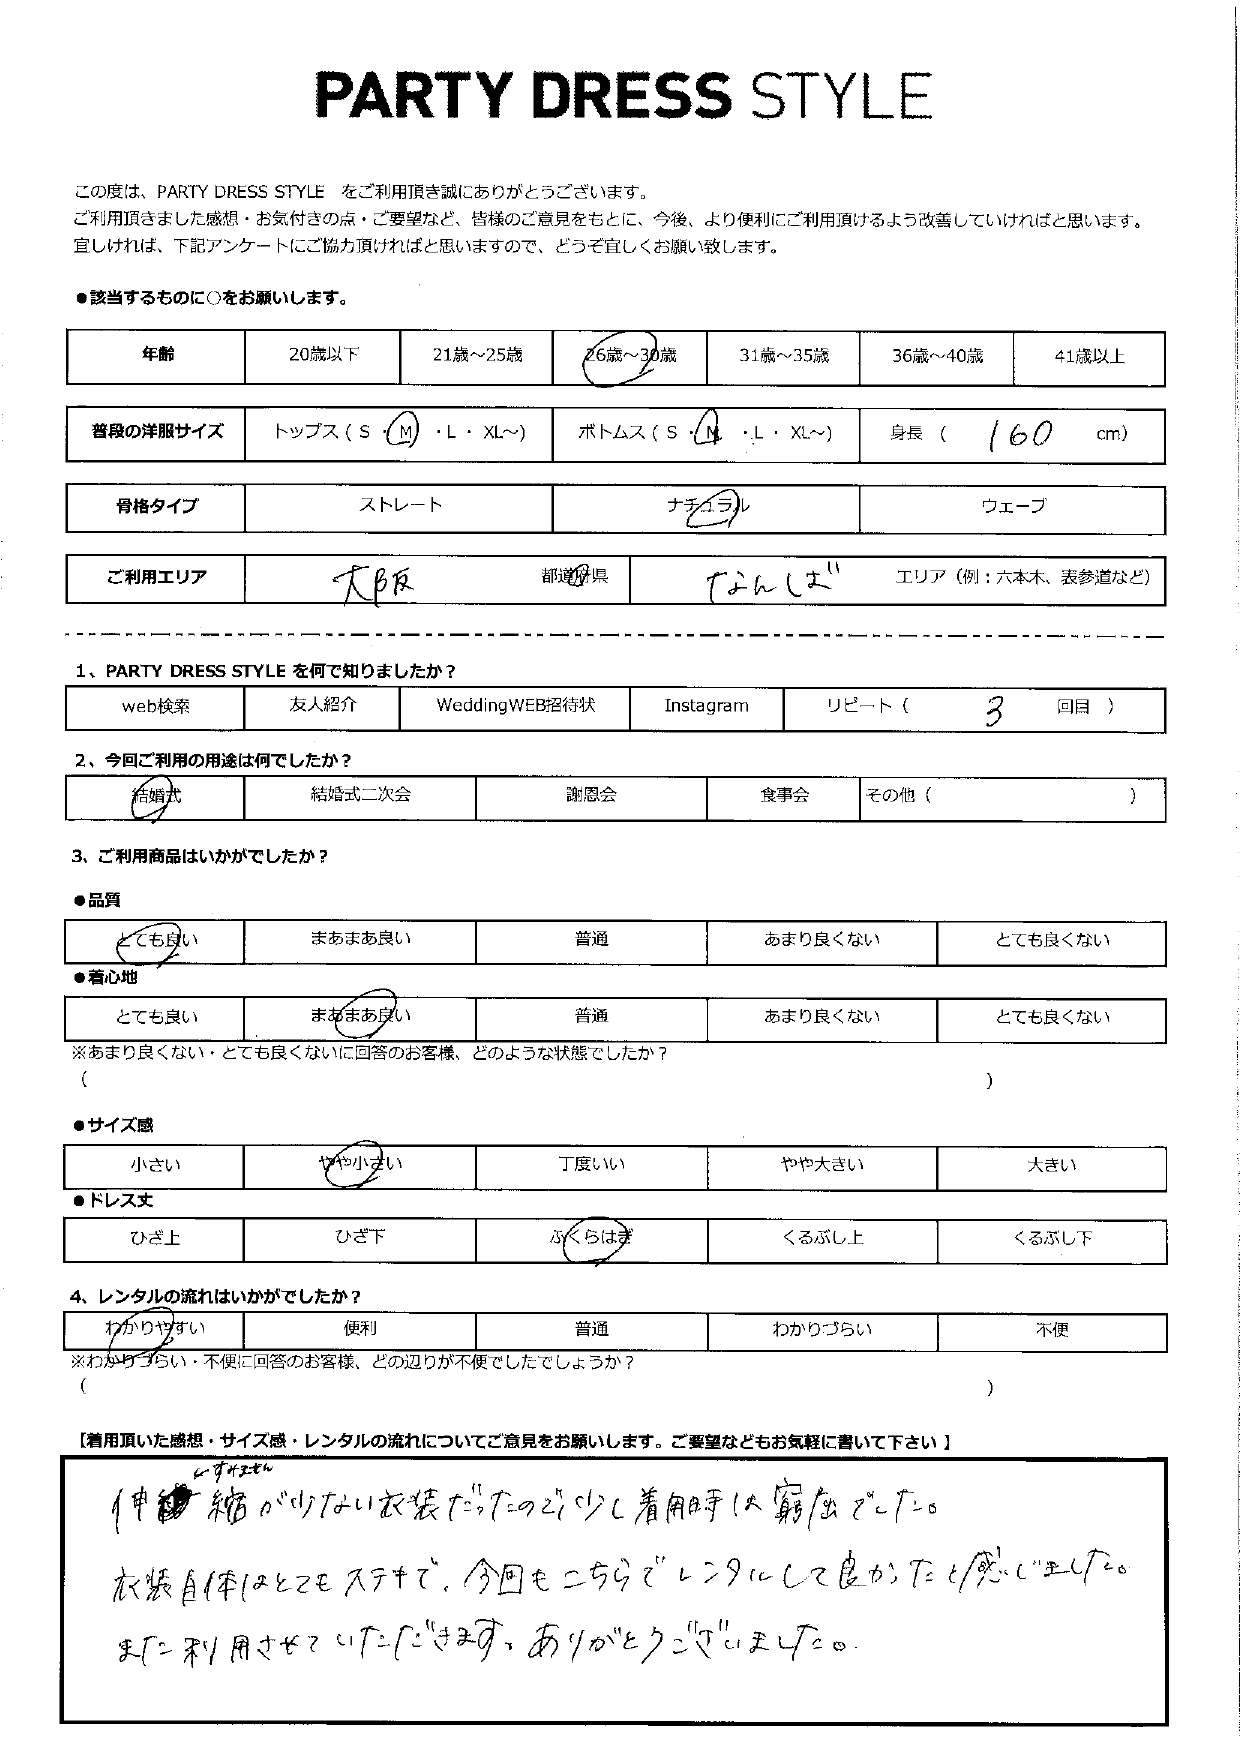 PARTY DRESS STYLE
この度は、PARTY DRESS STYLE をご利用頂き誠にありがとうございます。
ご利用頂きました感想・お気付きの点・ご要望など、皆様のご意見をもとに、今後、より便利にご利用頂けるよう改善していければと思います。
宜しければ、下記アンケートにご協力頂ければと思いますので、どうぞ宜しくお願い致します。
●該当するものに○をお願いします。
年齢 20歳以下 21歳～25歳 26歳～30歳 31歳～35歳 36歳～40歳 41歳以上
普段の洋服サイズ トップス ( S ・ M ・ L ・ XL～) ボトムス ( S ・ M ・ L ・ XL～) 身長 ( 160 cm)
骨格タイプ ストレート ナチュラル ウェーブ
ご利用エリア 大阪 都道府県 なんば エリア（例：六本木、表参道など）
1、PARTY DRESS STYLE を何で知りましたか？
web検索 友人紹介 WeddingWEB招待状 Instagram リピート（ 3 回目 ）
2、今回ご利用の用途は何でしたか？
結婚式 結婚式二次会 謝恩会 食事会 その他（ ）
3、ご利用商品はいかがでしたか？
●品質
とても良い まあまあ良い 普通 あまり良くない とても良くない
●着心地
とても良い まあまあ良い 普通 あまり良くない とても良くない
※あまり良くない・とても良くないに回答のお客様、どのような状態でしたか？
( )
●サイズ感
小さい やや小さい 丁度いい やや大きい 大きい
●ドレス丈
ひざ上 ひざ下 ふくらはぎ くるぶし上 くるぶし下
4、レンタルの流れはいかがでしたか？
わかりやすい 便利 普通 わかりづらい 不便
※わかりづらい・不便に回答のお客様、どの辺りが不便でしたでしょうか？
( )
【着用頂いた感想・サイズ感・レンタルの流れについてご意見をお願いします。ご要望などもお気軽に書いて下さい 】
←すみません
伸縮が少ない衣装だったので少し着用時は窮屈でした。
衣装自体はとてもステキで、今回もこちらでレンタルして良かったと感じました。
また利用させていただきます。ありがとうございました。